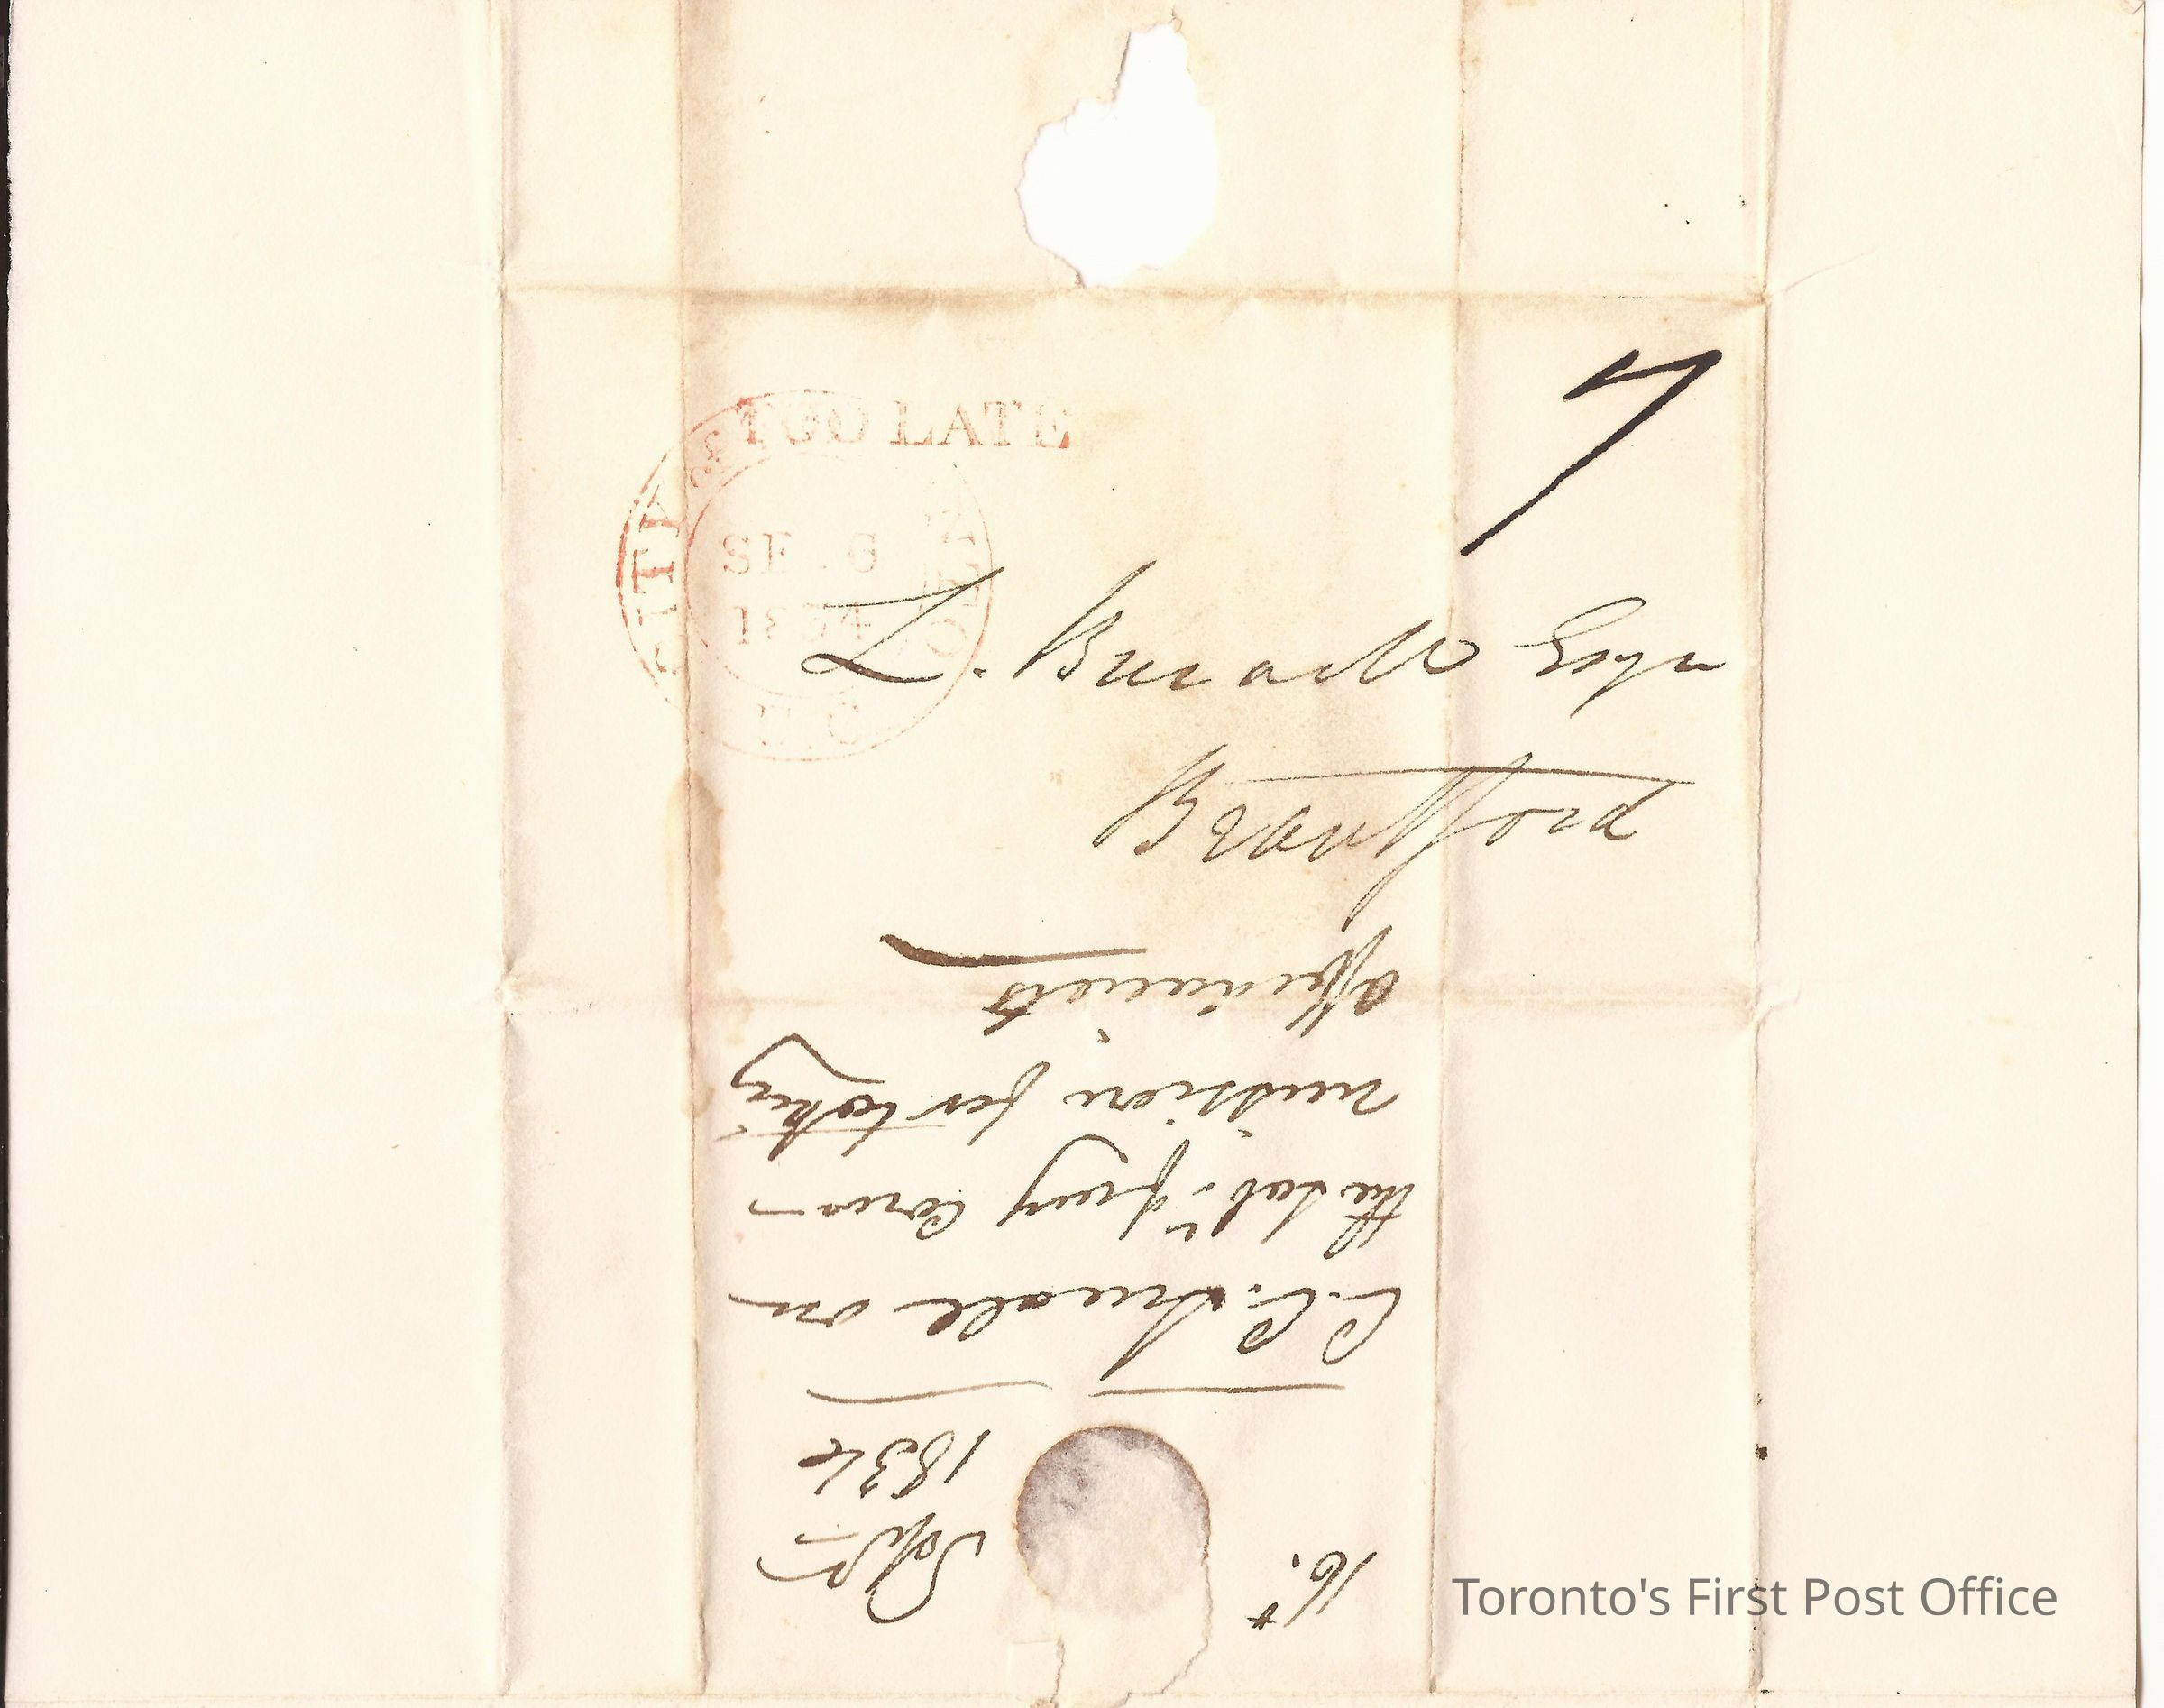 TOO LATE
CITY OF TORONTO
SE . 6
1834
U.C
7
L. Burwell Esqr
Brantford
16.
Septr
1834
C. C. Small on
the subt. of my Com-
mission for taking
affidavits
Toronto's First Post Office